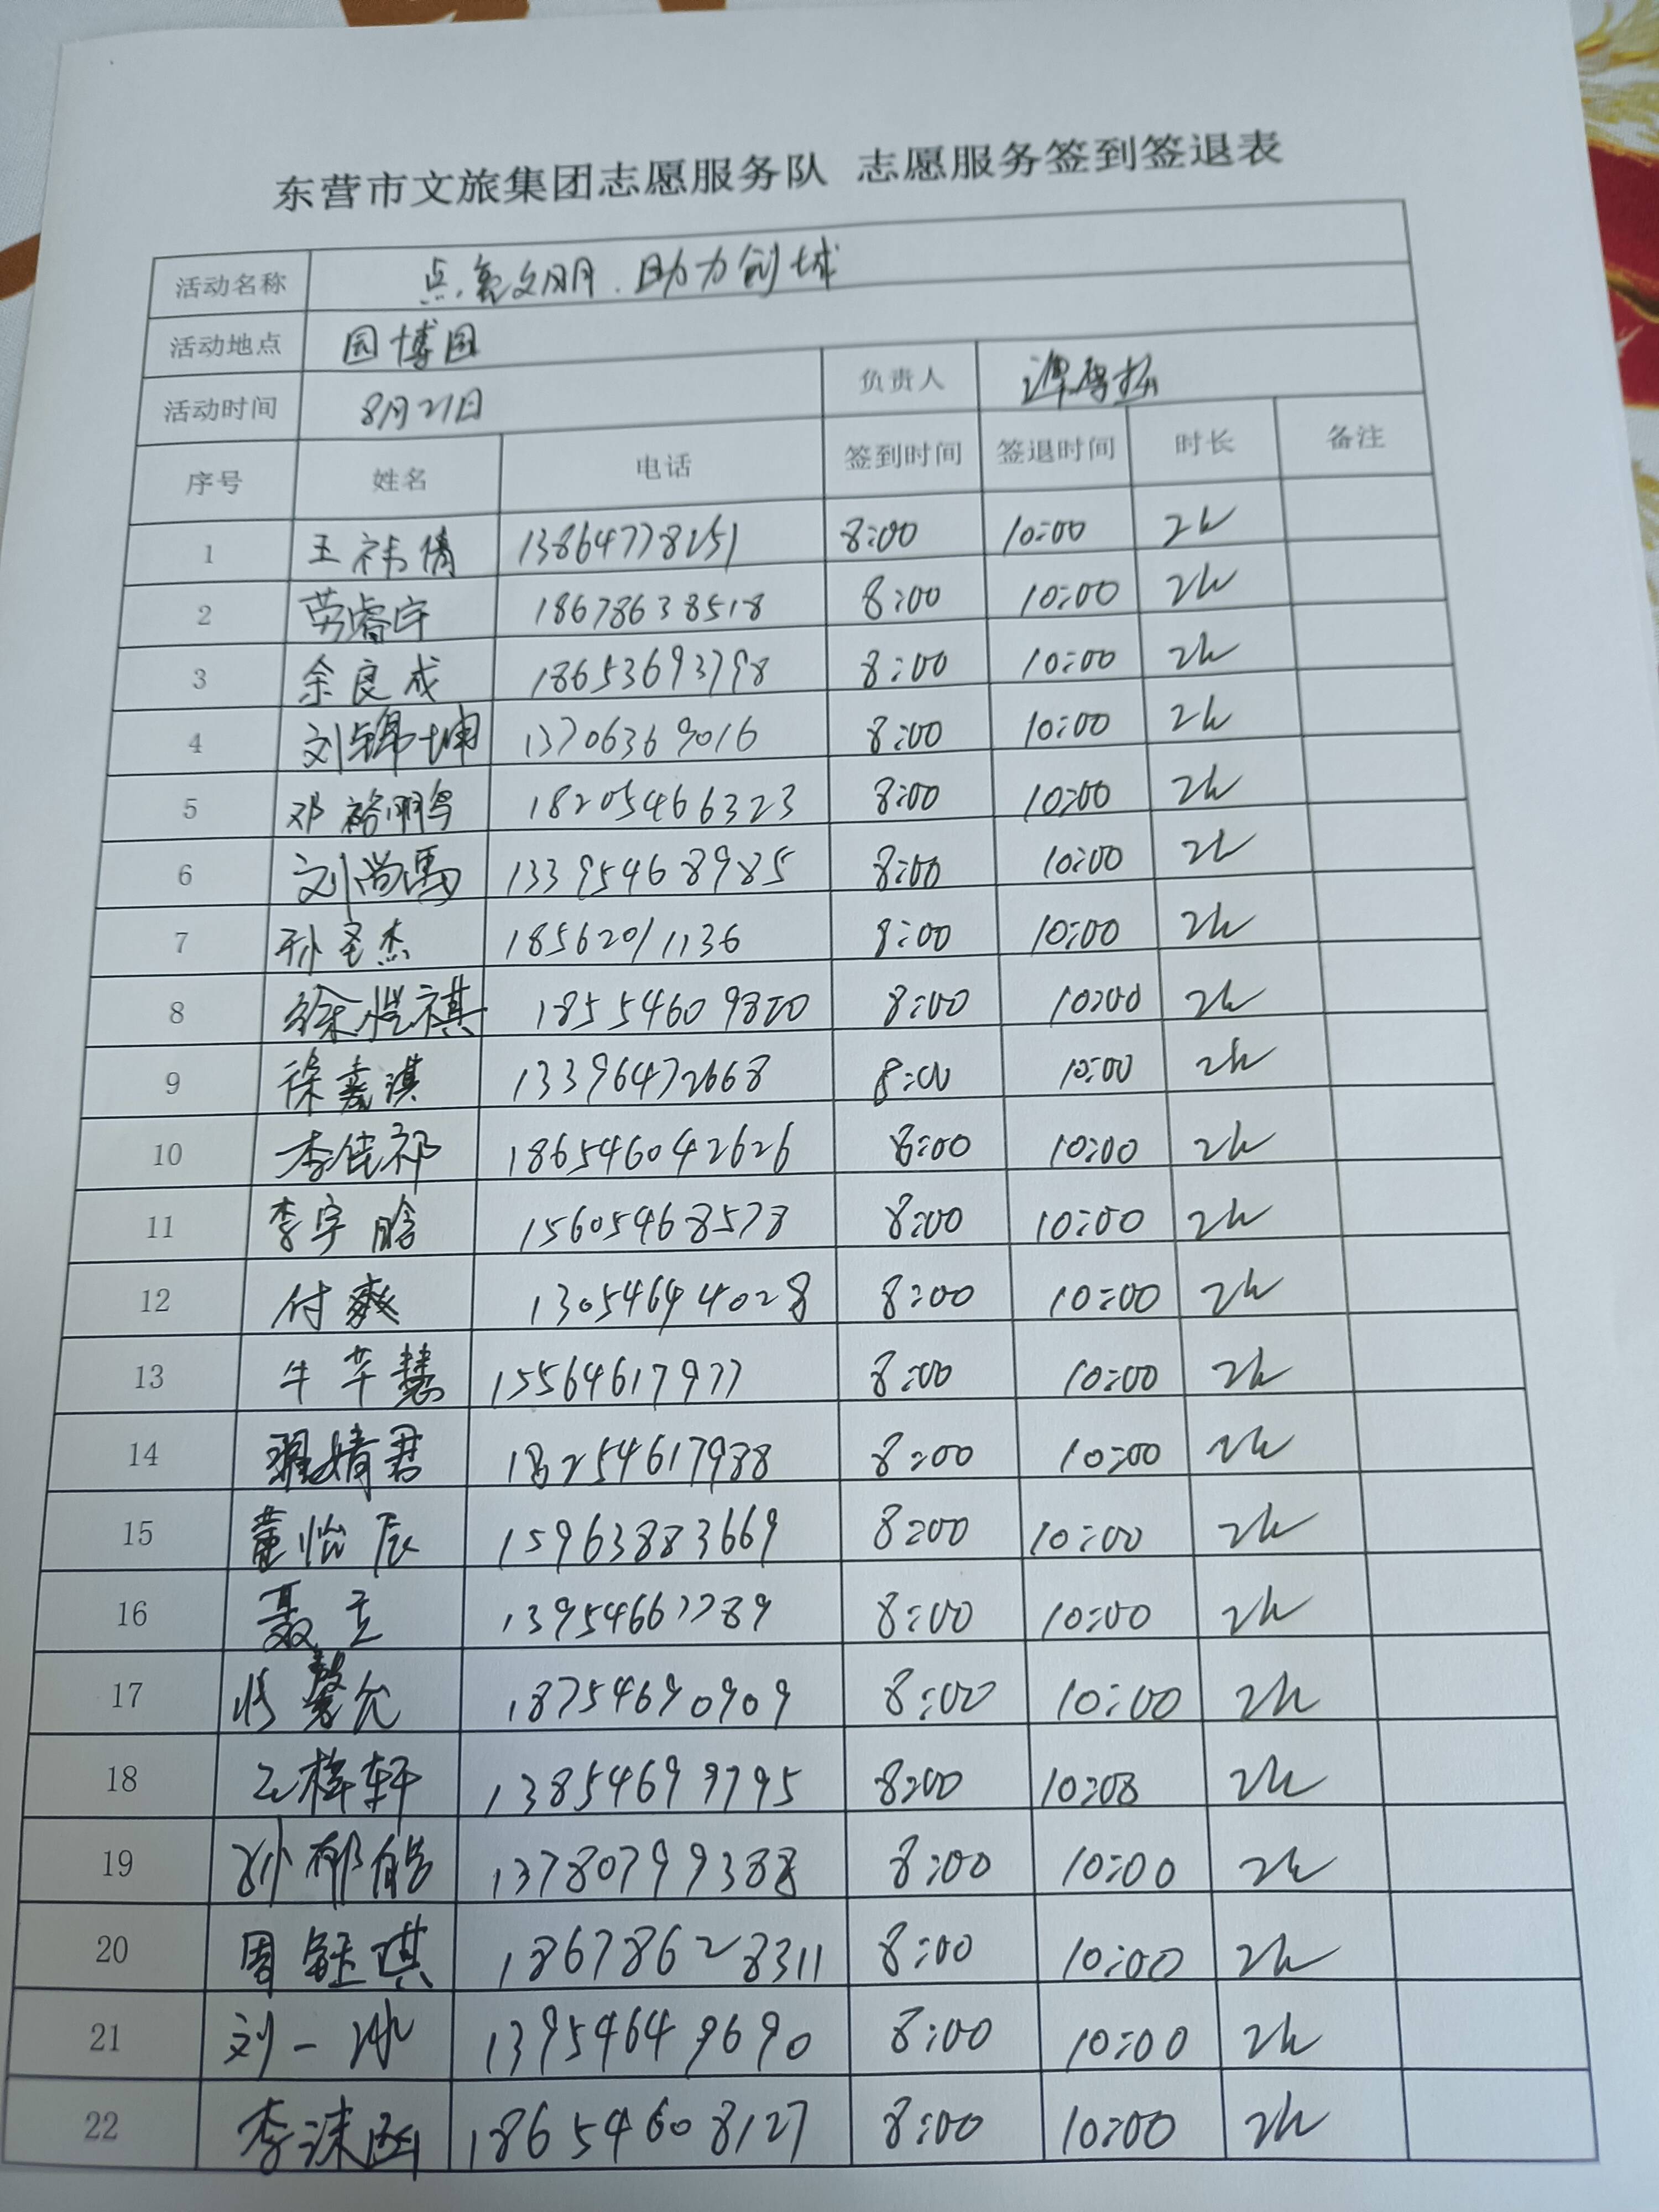 东营市文旅集团志愿服务队 志愿服务签到签退表
活动名称 点亮文明.助力创城
活动地点 园博园
活动时间 8月21日 负责人
序号 姓名 电话 签到时间 签退时间 时长 备注
1 王祎倩 13864778251 8:00 10:00 2h
2 劳睿宇 18678638518 8:00 10:00 2h
3 余良成 18653693798 8:00 10:00 2h
4 刘锦坤 13706369016 8:00 10:00 2h
5 邓裕鹏 18205466323 8:00 10:00 2h
6 刘尚禹 13395468985 8:00 10:00 2h
7 孙圣杰 18562011136 8:00 10:00 2h
8 徐恺祺 18554609820 8:00 10:00 2h
9 徐嘉淇 13396472668 8:00 10:00 2h
10 李佳祁 186546042626 8:00 10:00 2h
11 李宇晗 15605468578 8:00 10:00 2h
12 付爽 13054644028 8:00 10:00 2h
13 牛芊慧 15564617977 8:00 10:00 2h
14 婧君 18254617988 8:00 10:00 2h
15 董怡辰 15963883669 8:00 10:00 2h
16 聂立 13954667789 8:00 10:00 2h
17 18754690909 8:00 10:00 2h
18 王梓轩 13854699795 8:00 10:08 2h
19 孙郁皓 13780799388 8:00 10:00 2h
20 周钰琪 18678628311 8:00 10:00 2h
21 刘一冰 13954649690 8:00 10:00 2h
22 李沫函 18654608127 8:00 10:00 2h